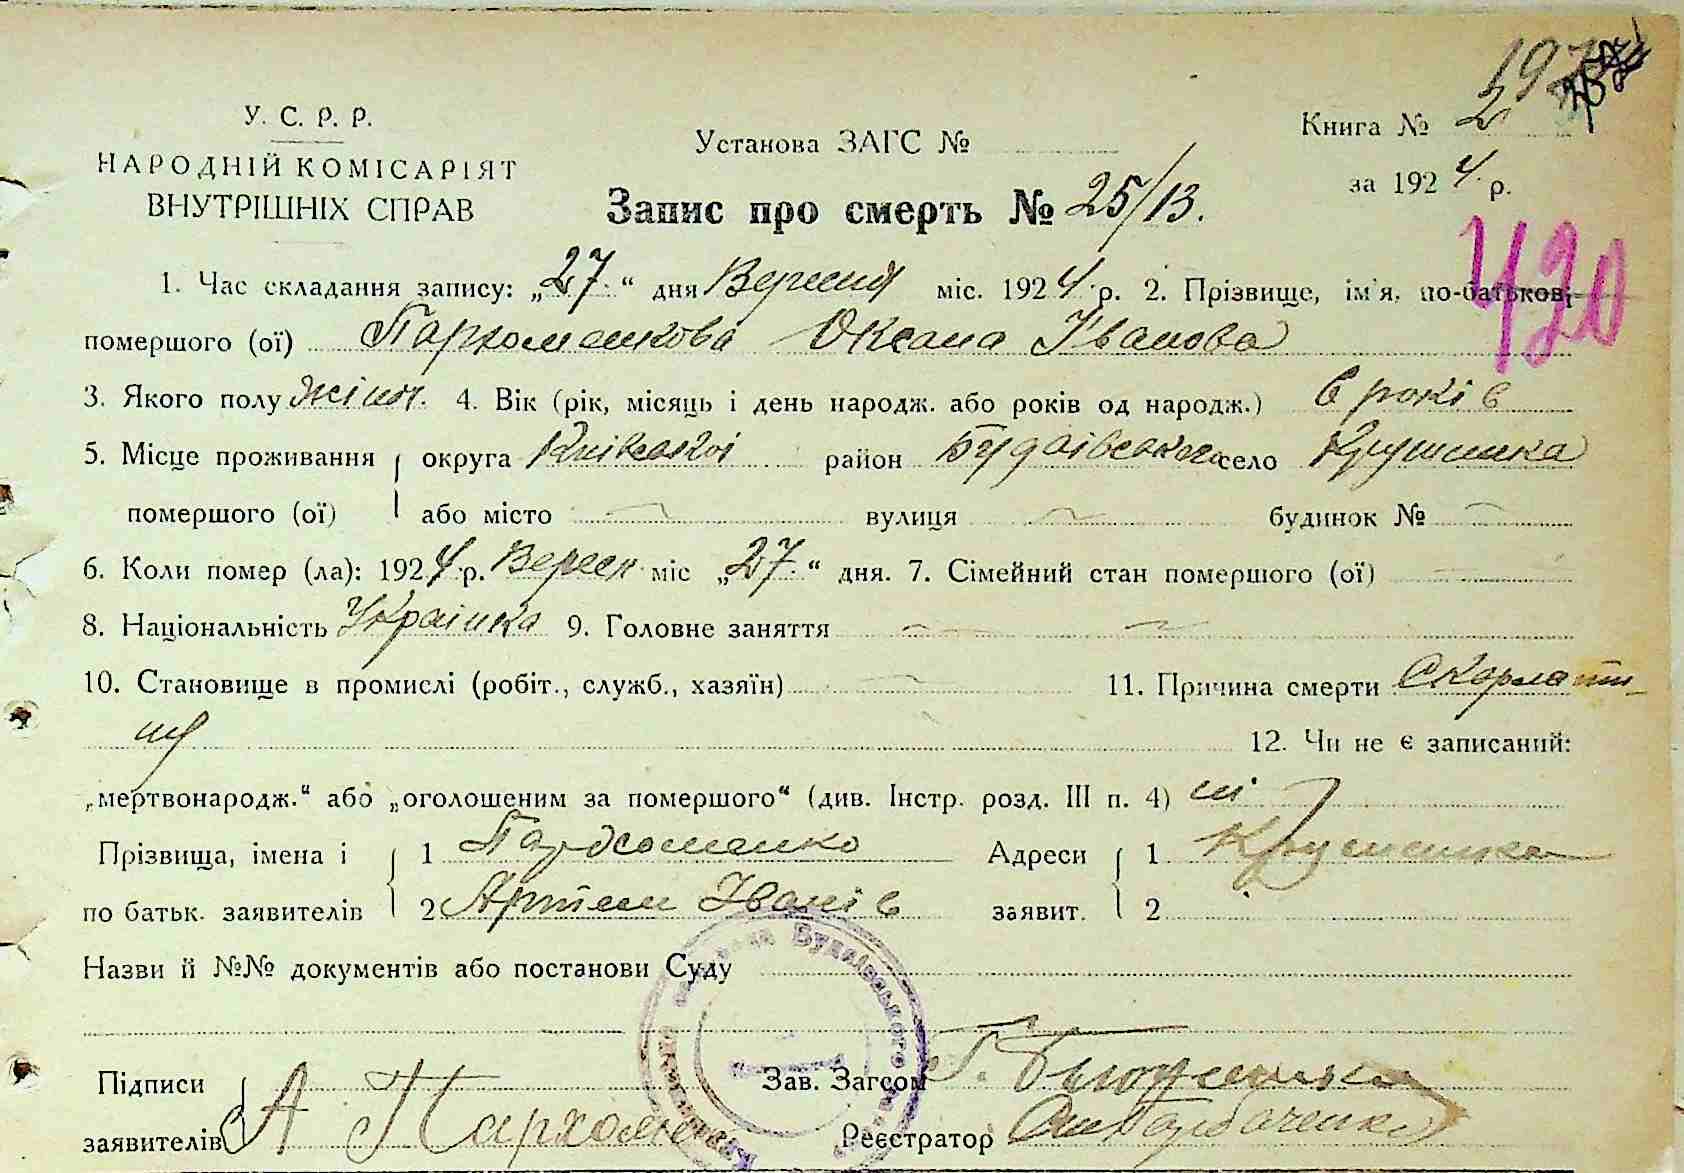 У. С. Р. Р.
НАРОДНІЙ КОМІСАРІЯТ
ВНУТРІШНІХ СПРАВ
Установа ЗАГС №
Книга № 2
за 1924 р.
Запис про смерть № 25/13.
420
1. Час складання запису: „27.“ дня Вересня міс. 1924 р. 2. Прізвище, ім'я, по-батькові
помершого (ої) Пархоменкова Оксана Іванова
3. Якого полу жіноч. 4. Вік (рік, місяць і день народж. або років од народж.) 6 років
5. Місце проживання округа Київської район Будаївського село Крушинка
помершого (ої) або місто — вулиця — будинок № —
6. Коли помер (ла): 1924 р. Вересн міс „27.“ дня. 7. Сімейний стан помершого (ої) —
8. Національність Українка 9. Головне заняття — —
10. Становище в промислі (робіт., служб., хазяїн) — 11. Причина смерти Скарлати-
ну
12. Чи не є записаний:
„мертвонародж.“ або „оголошеним за помершого“ (див. Інстр. розд. III п. 4) ні
Прізвища, імена і 1 Пархоменко Адреси 1 Крушинка
по батьк. заявителів 2 Артем Іванів заявит. 2
Назви й №№ документів або постанови Суду
Будаївського
Підписи
Зав. Загсом Г.
заявителів А Пархоменко Реєстратор